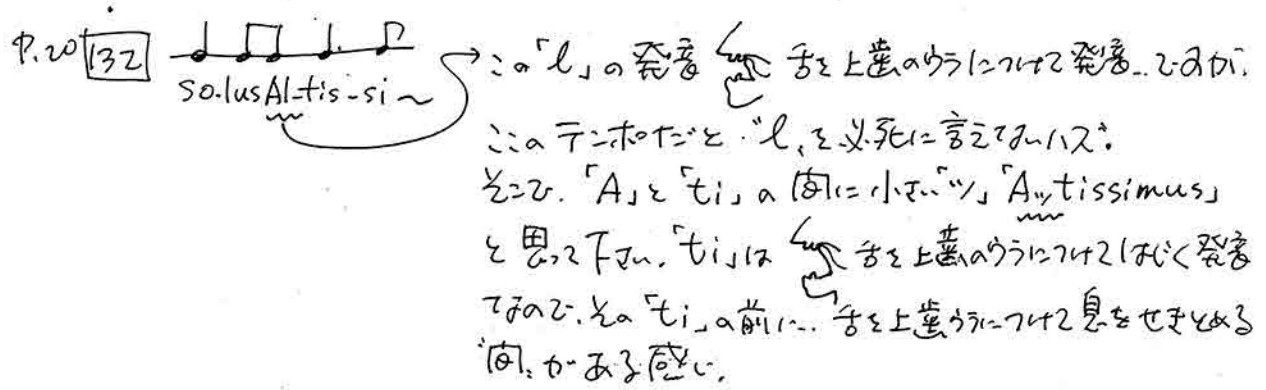 P.20 132
so-lus Al-tis-si〜
この「l」の発音 舌を上歯のウラにつけて発音..ですが、
ここのテンポだと"l"を必死に言えてないハズ。
そこで、「A」と「ti」の間に小さい"ッ"「Aッtissimus」
と思って下さい。「ti」は 舌を上歯のウラにつけてはじく発音
なので、その「ti」の前に.. 舌を上歯ウラにつけて息をせきとめる
"間"がある感じ。